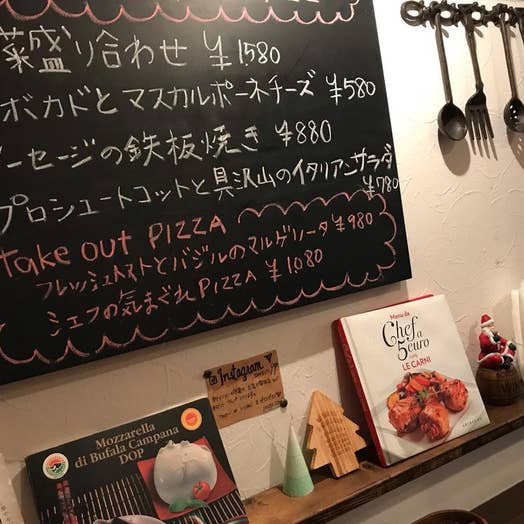 菜盛り合わせ ¥1,580
ボカドとマスカルポーネチーズ ¥580
ーセージの鉄板焼き ¥880
プロシュートコットと具沢山のイタリアンサラダ
¥780
take out PIZZA
フレッシュトマトとバジルのマルゲリータ ¥980
シェフの気まぐれPIZZA ¥1,080
Instagram
Menu da
Chef a
5 euro
LE CARNI
Mozzarella
di Bufala Campana
DOP